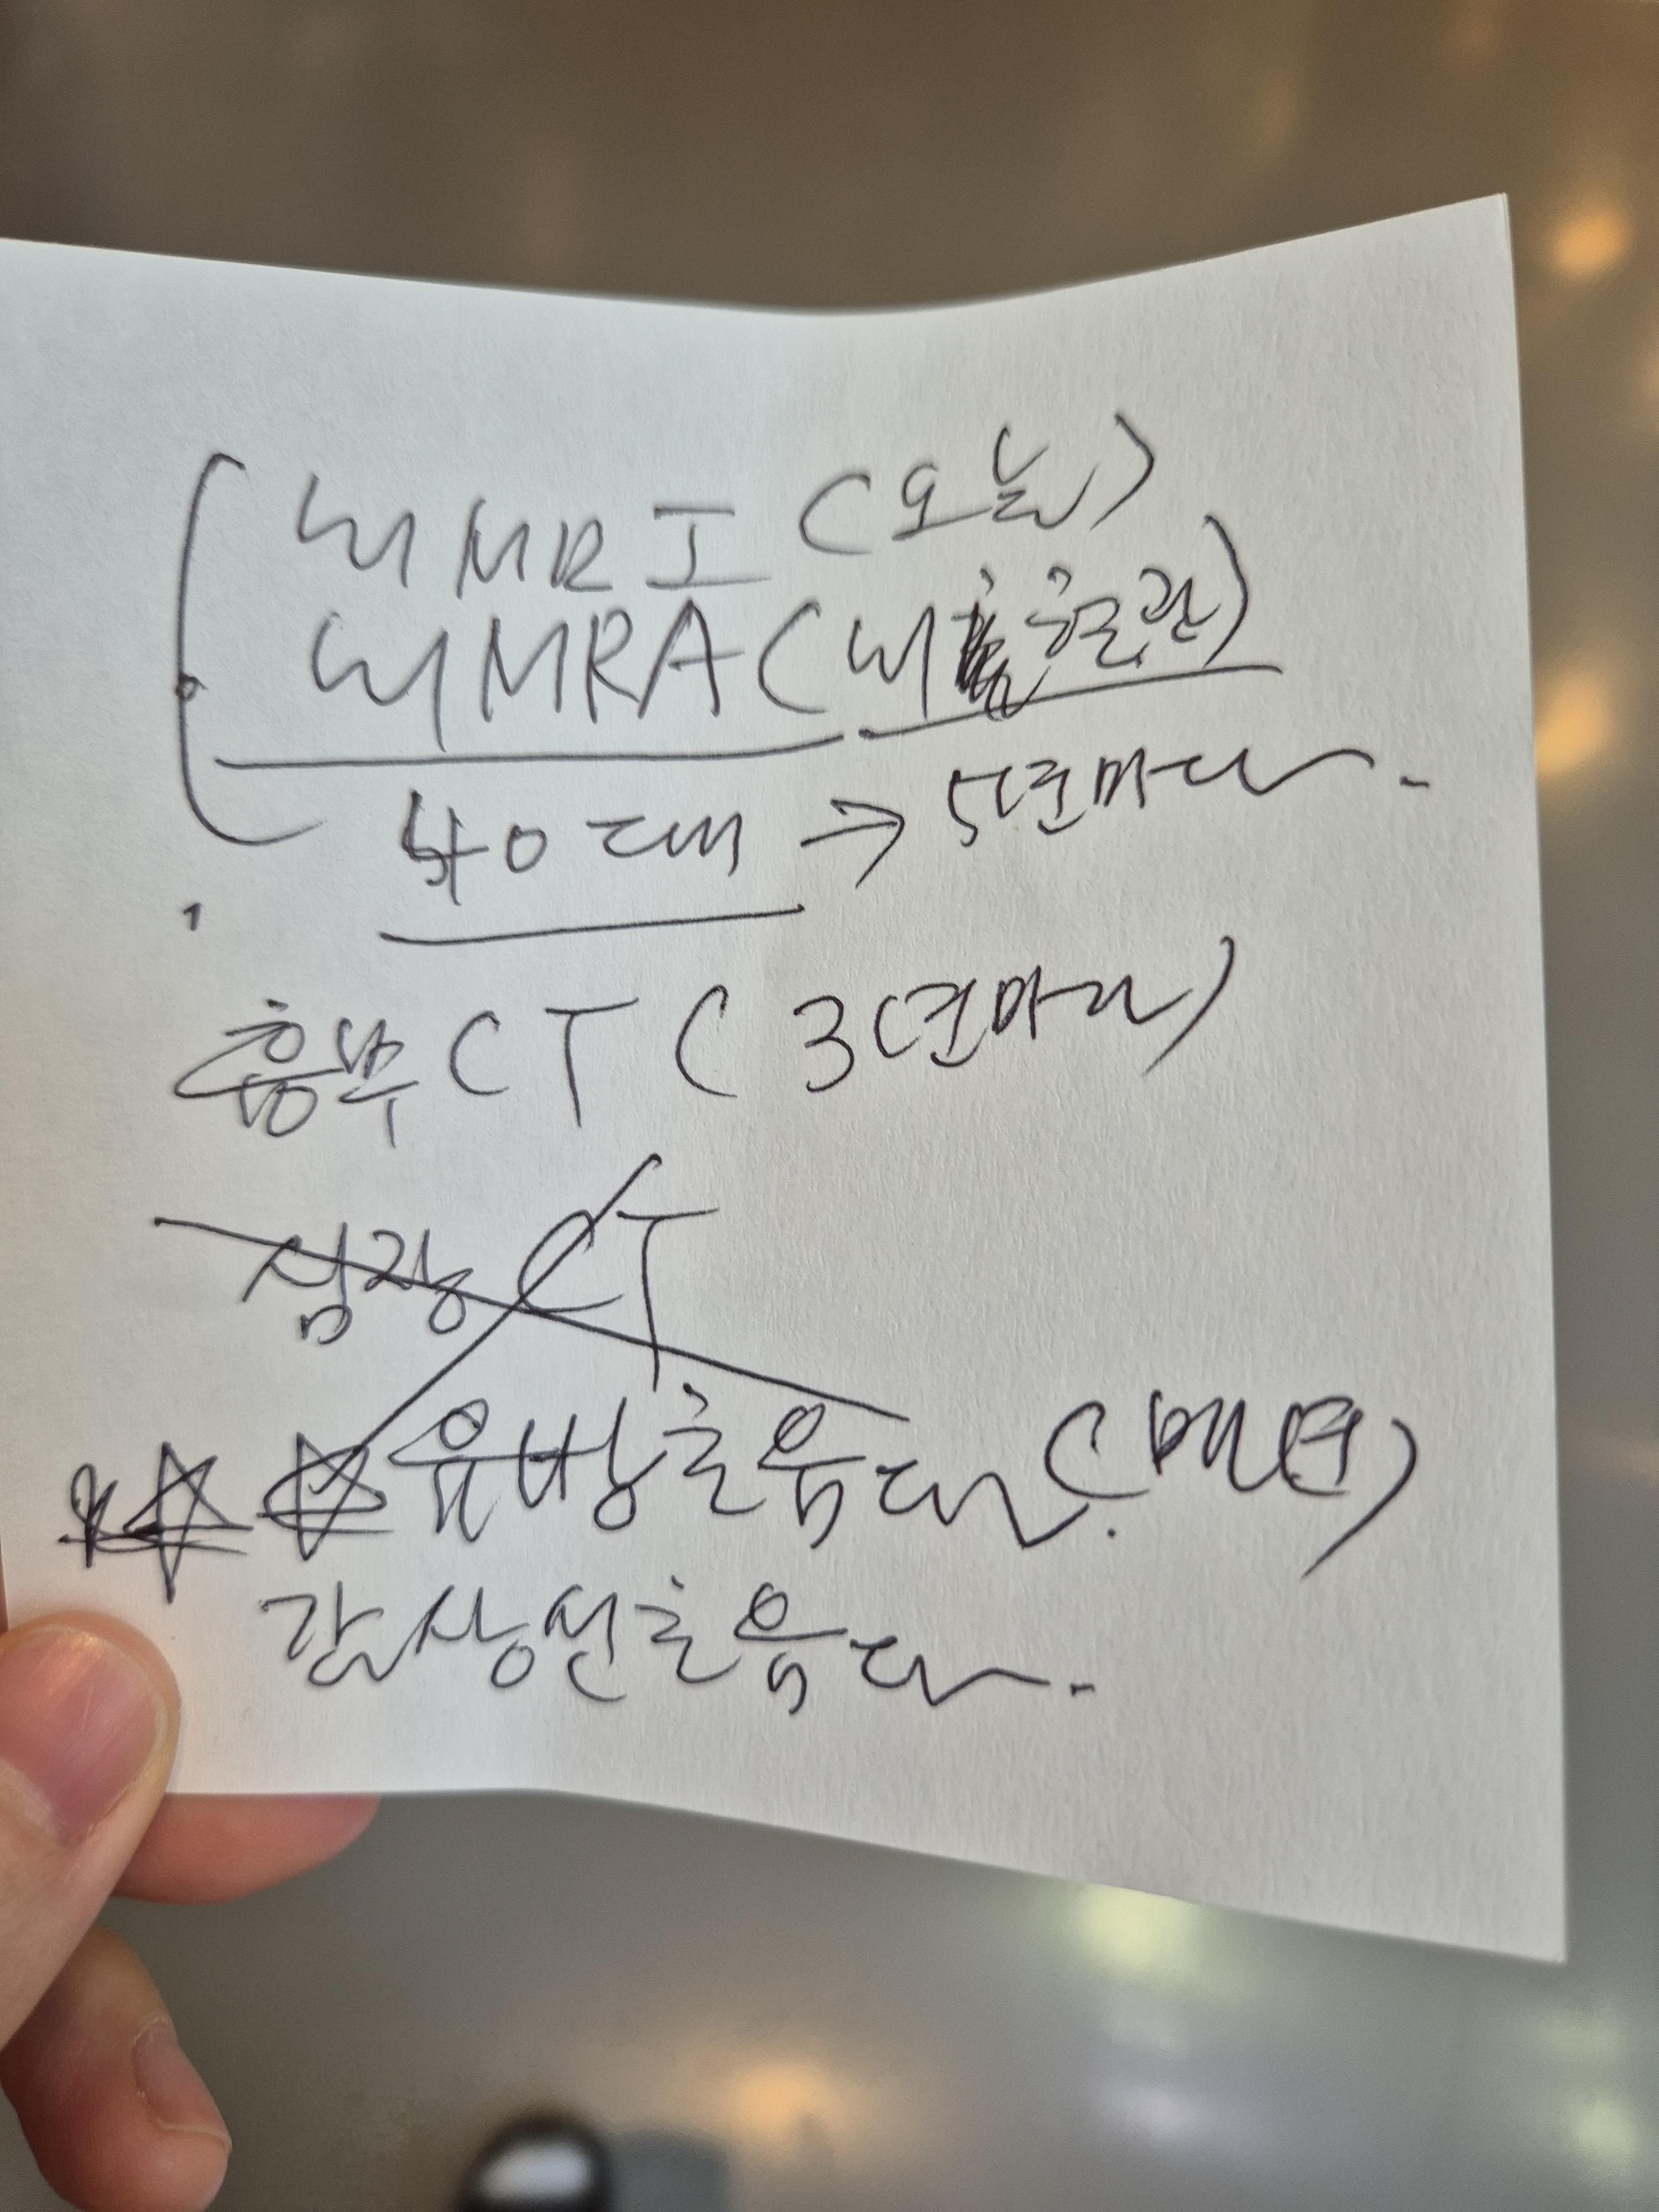 뇌 MRI (오늘)
뇌 MRA (뇌 혈관)
40대 → 5년마다.
흉부 CT (3년마다)
심장 CT
유방초음파. (매년)
갑상선초음파.